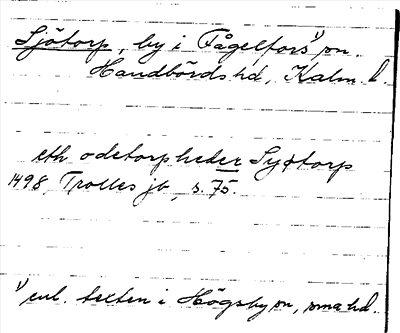 Sjötorp, by i Fågelfors¹⁾ sn.
Handbörds hd, Kalm. l.
eth ødetorp heder Syøtorp
1498, Trolles jb, s. 75.
¹⁾ enl. texten i Högsby sn, sma hd.